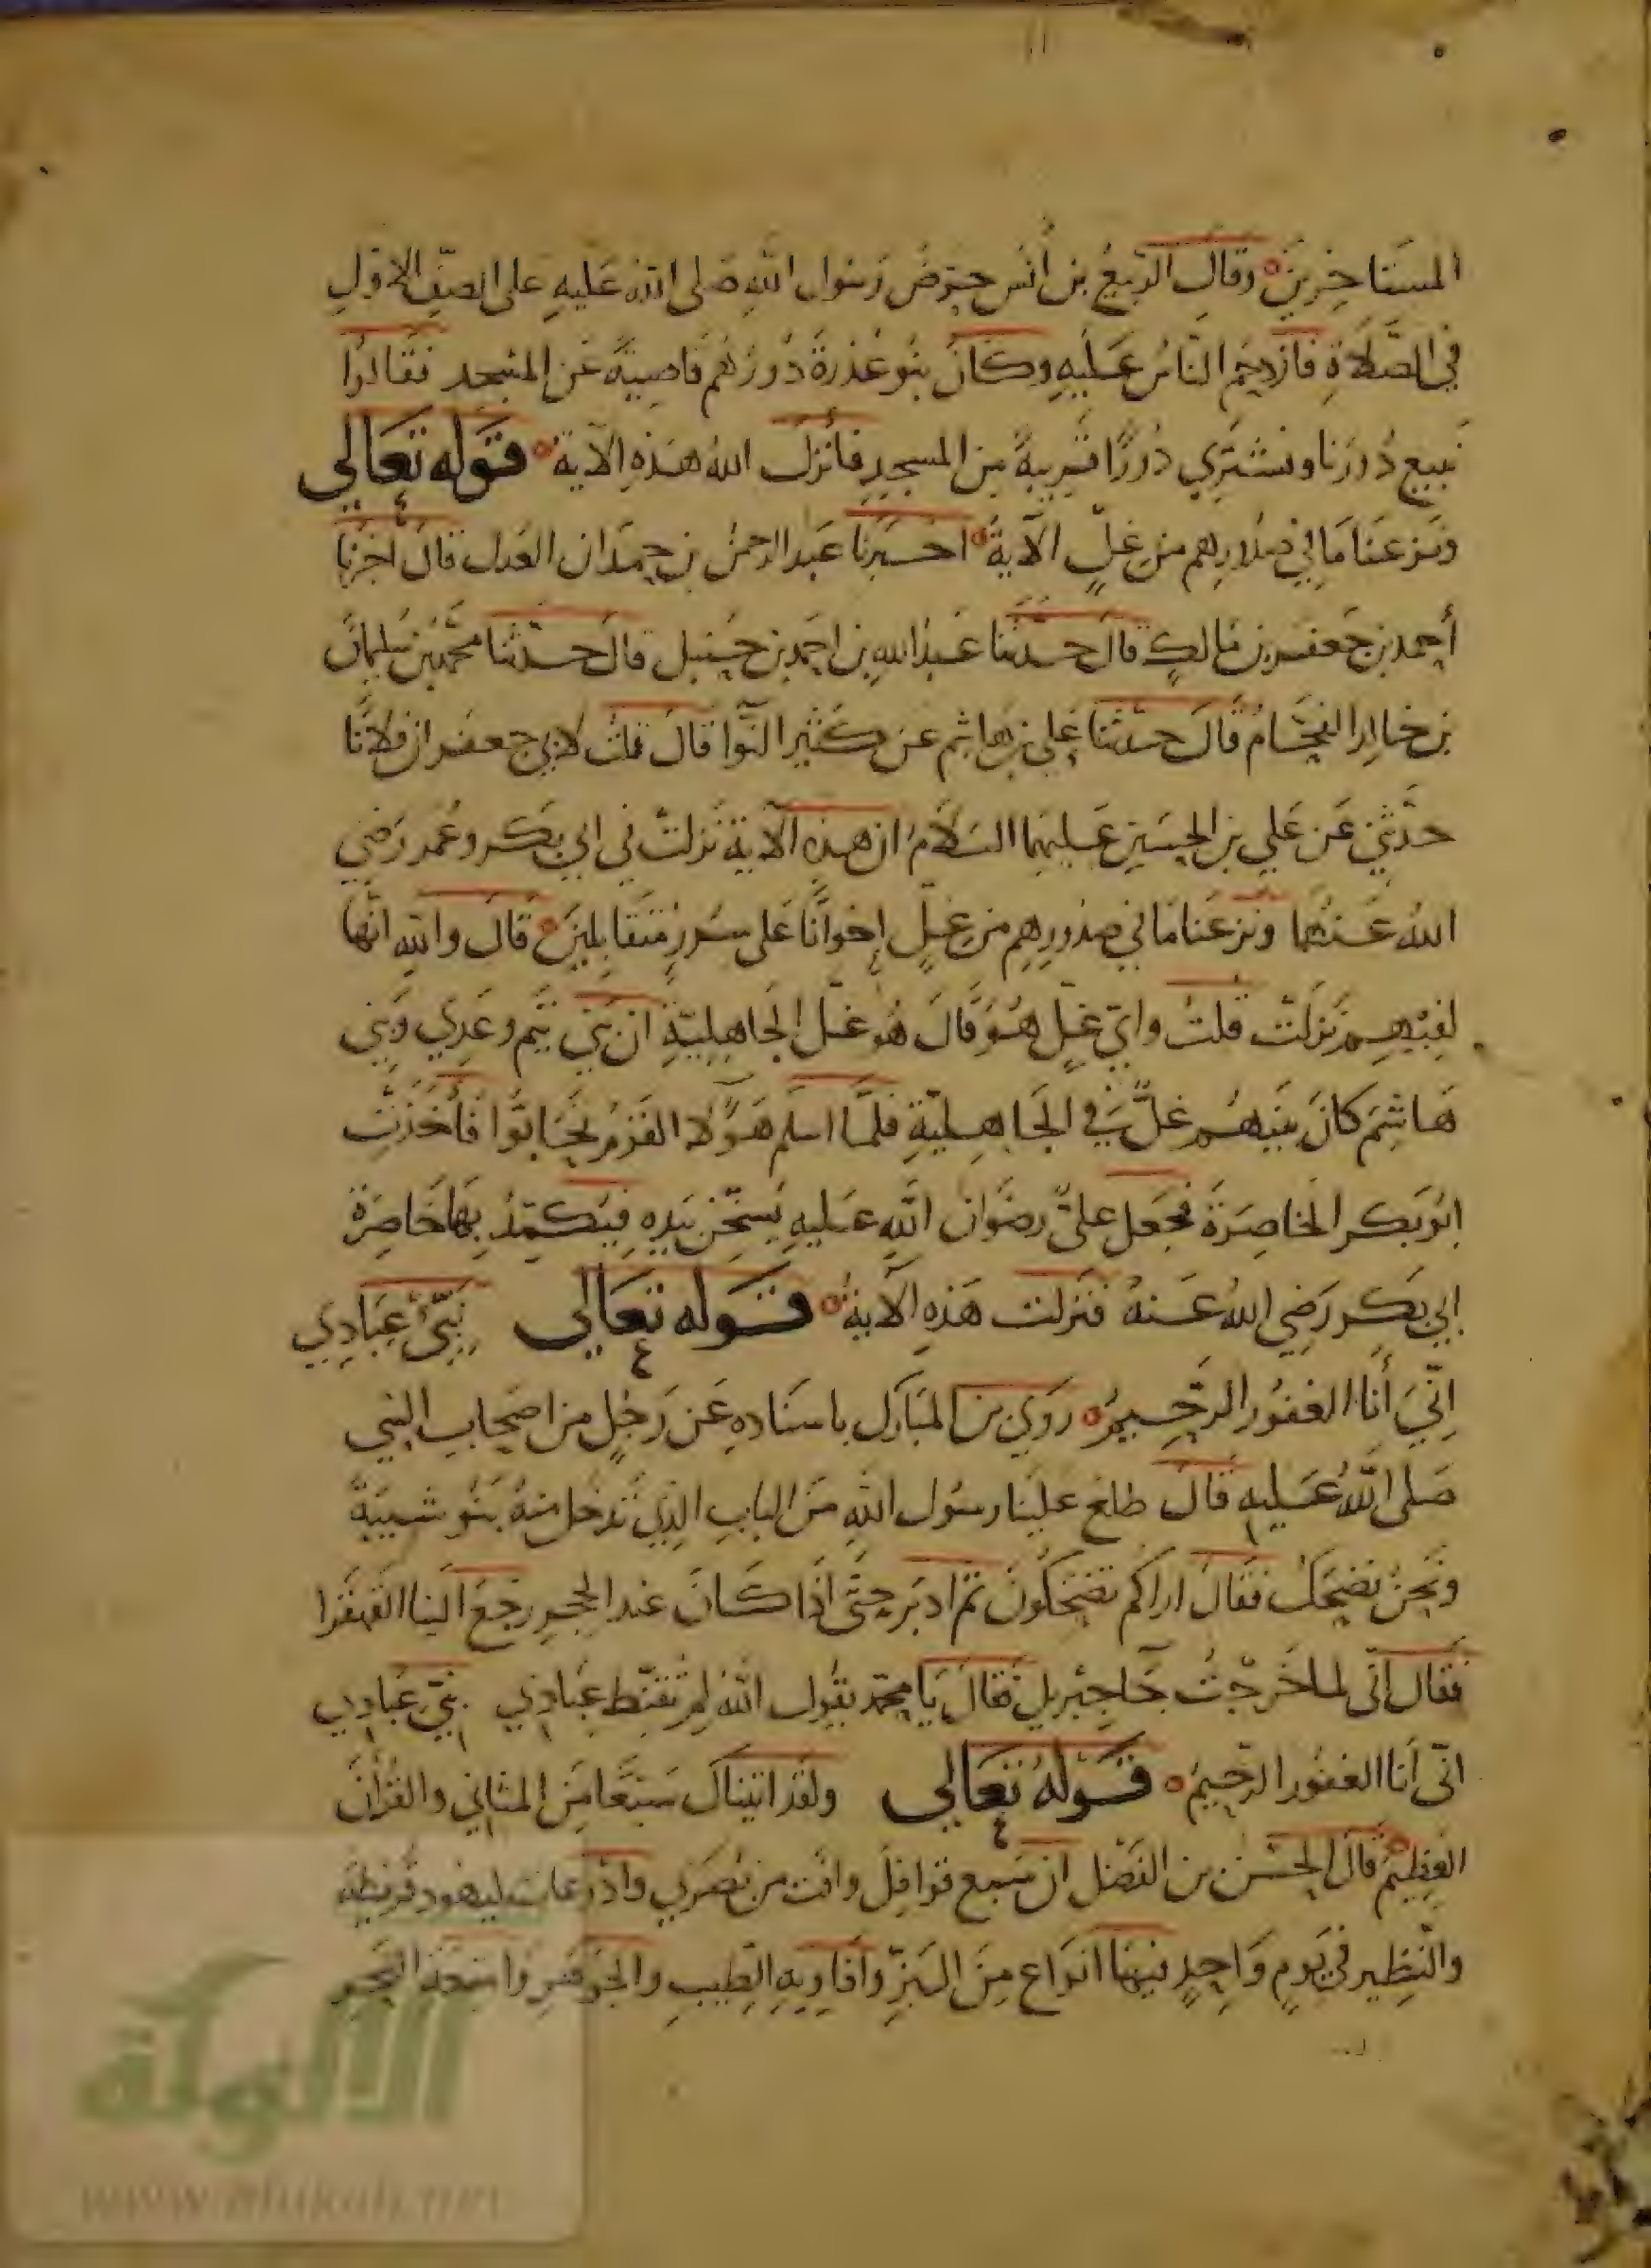 المستاخرين وقال الربيع بن أنس حرض رسول الله صلى الله عليه على الصف الاول
في الصلاة فازدحم الناس عليه وكان بنو عذرة دورهم قاصية عن المسجد فقالوا
نبيع دورنا ونشتري دورا قريبة من المسجد فأنزل الله هذه الآية قوله تعالي
ونزعنا ما في صدورهم من غل الآية اخبرنا عبد الرحمن بن حمدان العدل قال اخبرنا
أحمد بن جعفر بن مالك قال حدثنا عبد الله بن احمد بن حنبل قال حدثنا محمد بن سليمان
بن خالد الفحام قال حدثنا علي بن هاشم عن كثير النوا قال قلت لابي جعفر ان فلانا
حدثني عن علي بن الحسين عليهما السلام ان هذه الآية نزلت في ابي بكر وعمر رضي
الله عنهما ونزعنا ما في صدورهم من غل اخوانا على سرر متقابلين قال والله انها
لفيهم نزلت قلت واي غل هو قال هو غل الجاهلية ان بني تيم وعدي وبني
هاشم كان بينهم غل في الجاهلية فلما اسلم هؤلا القوم تحابوا فأخذت
ابو بكر الخاصرة فجعل علي رضوان الله عليه يسخن يده فيكمد بها خاصرة
ابي بكر رضي الله عنه فنزلت هذه الآية قوله تعالي نبئ عبادي
اني أنا الغفور الرحيم روي بن المبارك باسناده عن رجل من اصحاب النبي
صلى الله عليه قال طلع علينا رسول الله من الباب الذي تدخل منه بنو شيبة
ونحن نضحك فقال اراكم تضحكون ثم ادبر حتى اذا كان عند الحجر رجع الينا القهقرا
فقال اني لما خرجت جا جبريل فقال يا محمد يقول الله لم تقنط عبادي نبي عبادي
اني أنا الغفور الرحيم قوله تعالي ولقد اتيناك سبعا من المثاني والقرآن
العظيم قال الحسن بن الفضل ان سبع قوافل وافت من بصري واذرعات ليهود قريظة
والنظير في يوم واحد فيها انواع من البز وافاويه الطيب والجوهر وامتعة البحر
الألوكة
www.alukah.net